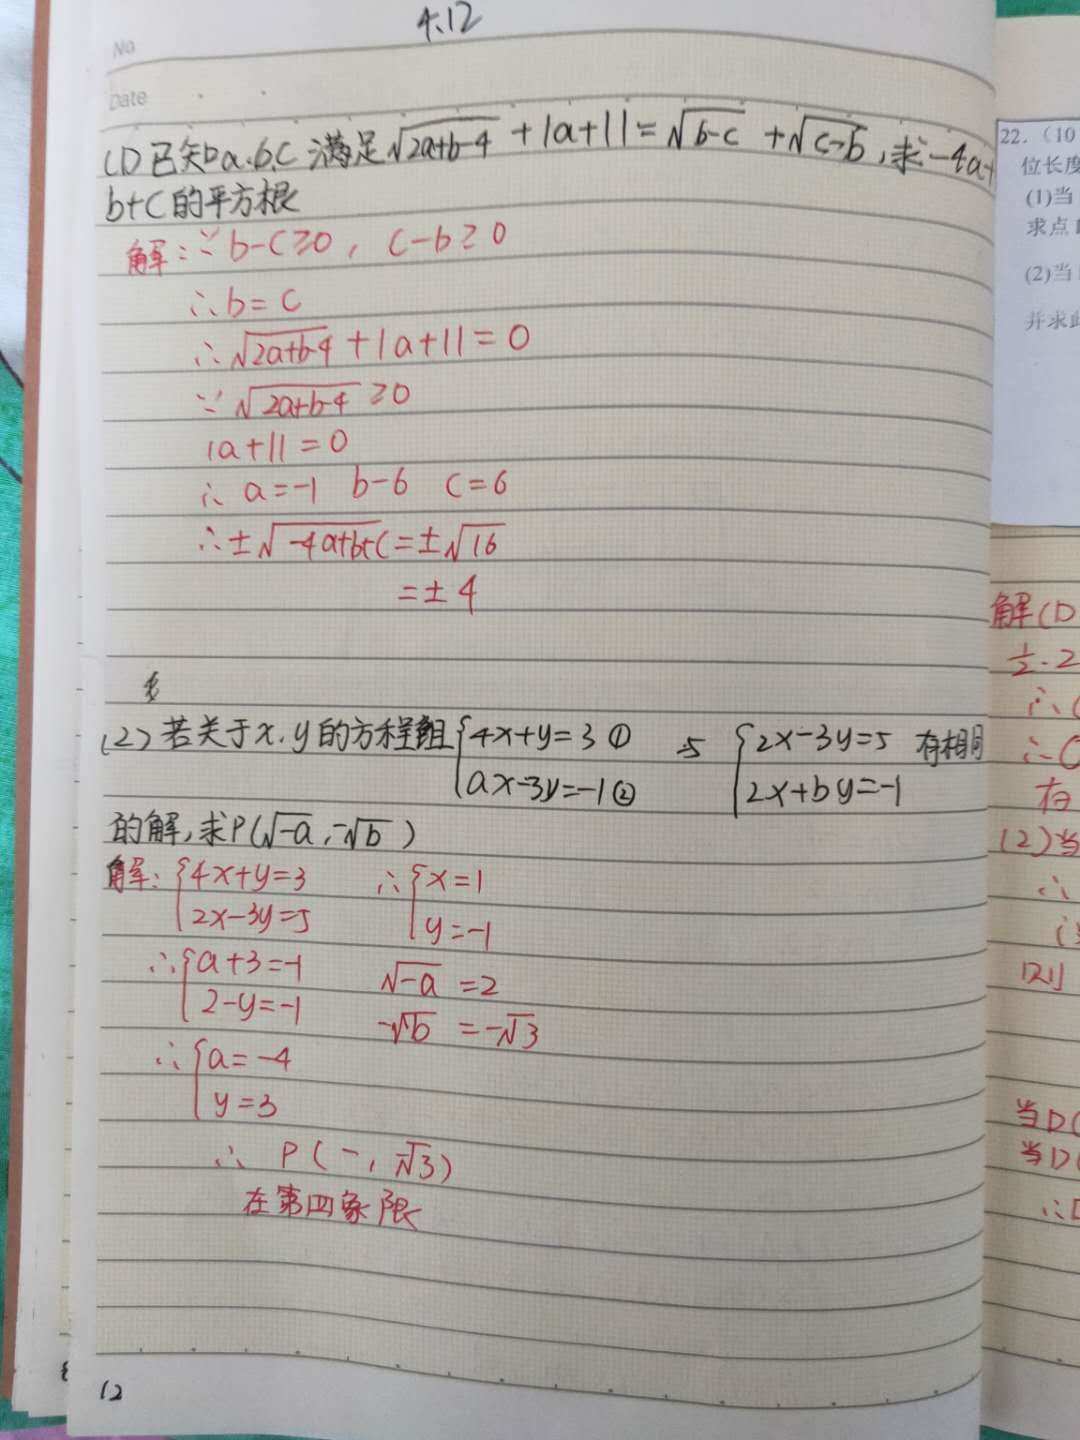 4.12
No
Date
(1)已知a.b.c 满足√(2a+b-4) + |a+1| = √(b-c) + √(c-b), 求-4a+
b+c的平方根
解:∵b-c≥0, c-b≥0
∴b=c
∴√(2a+b-4) + |a+1| = 0
∵√(2a+b-4) ≥0
|a+1| = 0
∴ a=-1 b-6 c=6
∴±√(-4a+b+c) = ±√16
=±4
(2)若关于x.y的方程组{4x+y=3① 与 {2x-3y=5 有相同
ax-3y=-1② 2x+by=-1
的解,求P(√-a,-√b)
解:{4x+y=3 ∴{x=1
2x-3y=5 y=-1
∴{a+3=-1 √-a =2
2-y=-1 -√b =-√3
∴{a=-4
y=3
∴ P(-, -√3)
在第四象限
12
22.(10
位长度
(1)当
求点
(2)当
并求此
解(1)
½·2
∴(
∴C
在
(2)当
∴
当D(
当D(
∴D